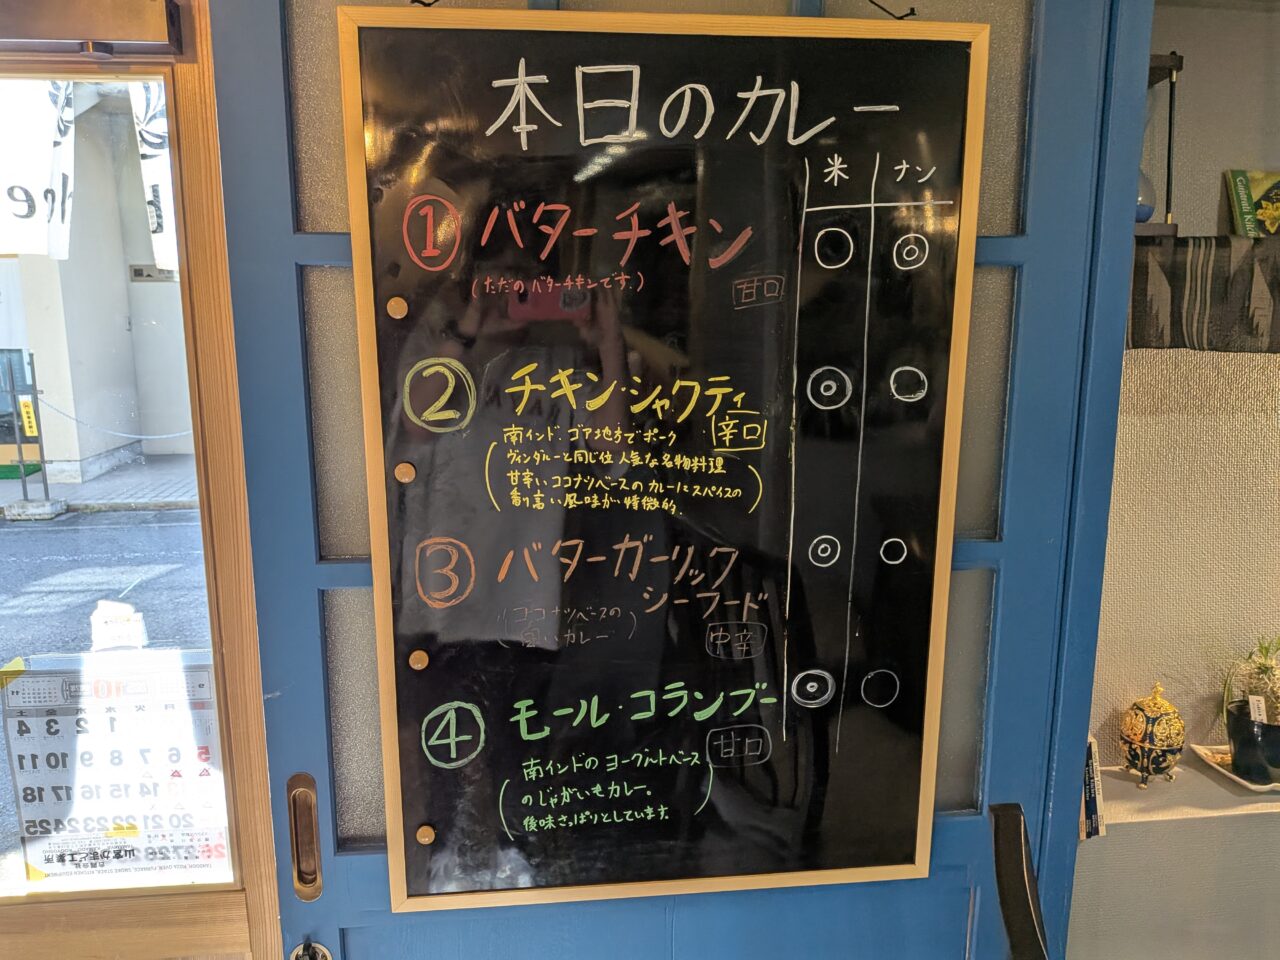 本日のカレー
米 ナン
① バターチキン ○ ◎
(ただのバターチキンです。)
甘口
② チキン・シャクティ ◎ ○
辛口
南インド、ゴア地方でポーク
ヴィンダルーと同じ位人気な名物料理
甘辛いココナツベースのカレーにスパイスの
香り高い風味が特徴的
③ バターガーリック ◎ ○
シーフード
(ココナツベースの
カレー)
中辛
④ モール・コランブー ◎ ○
甘口
南インドのヨーグルトベース
のじゃがいもカレー。
後味さっぱりとしています。
10
1 2 3 4
5 6 7 8 9 10 11
13 14 15 16 17 18
20 21 22 23 24 25
山宮かまど工業所